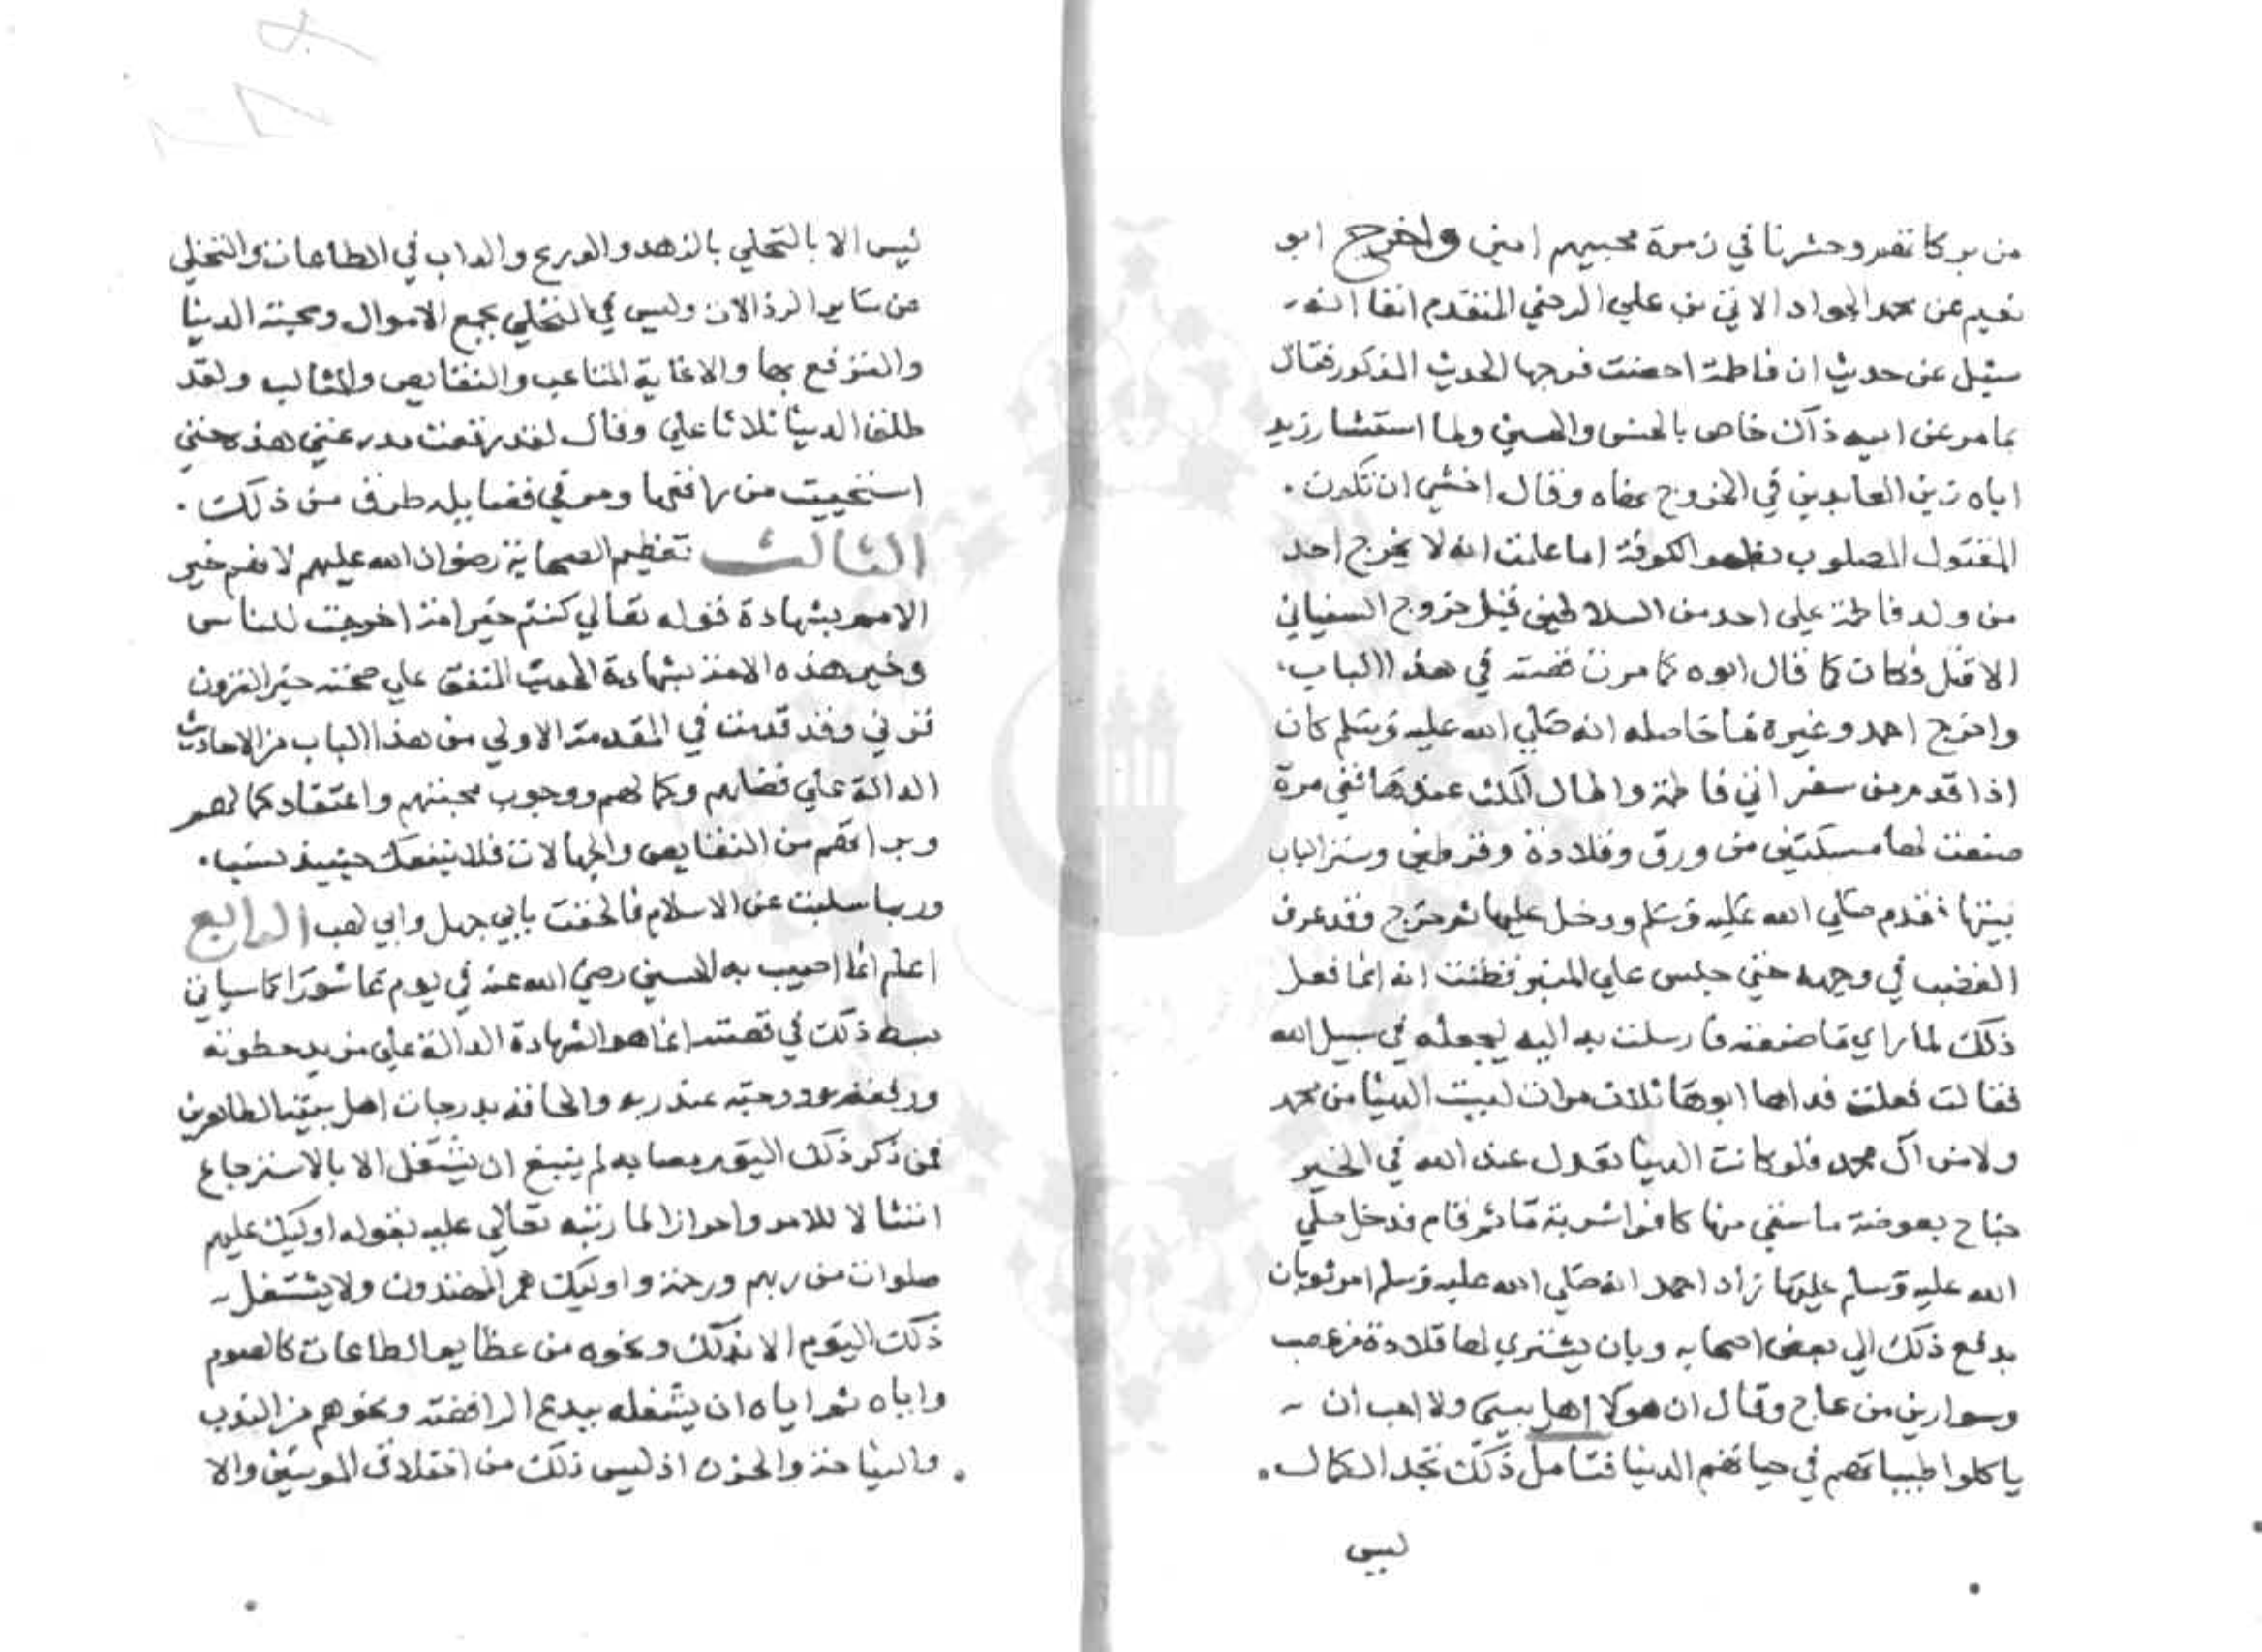 من بركاتهم وحشرنا في زمرة محبيهم امين واخرج ابو
نعيم عن محمد الجواد الاتي بن علي الرضي المتقدم انفا انه
سئل عن حديث ان فاطمة احصنت فرجها الحديث المذكور فقال
بما مر عن ابيه ذاك خاص بالحسن والحسين ولما استشار زيد
اباه زين العابدين في الخروج نهاه وقال اخشي ان تكون
المقتول المصلوب بظهر الكوفة اما علمت انه لا يخرج احد
من ولد فاطمة علي احد من السلاطين قبل خروج السفياني
الا قتل فكان كما قال ابوه كما مرت قصته في هذا الباب
واخرج احمد وغيره ما حاصله انه صلي الله عليه وسلم كان
اذا قدم من سفر اتي فاطمة واطال المكث عندها ففي مرة
صنعت لها مسكتين من ورق وقلادة وقرطين وستر الباب
بيتها فقدم صلي الله عليه وسلم ودخل عليها ثم خرج وقد عرف
الغضب في وجهه حتي جلس علي المنبر فظنت انه انما فعل
ذلك لما راي ما صنعته فارسلت به اليه ليجعله في سبيل الله
فقالت فعلت فداها ابوها ثلاث مرات ليست الدنيا من محمد
ولا من ال محمد فلو كانت الدنيا تعدل عند الله في الخير
جناح بعوضة ما سقي منها كافرا شربة ما ثم قام فدخل صلي
الله عليه وسلم عليها زاد احمد انه صلي الله عليه وسلم امر ثوبان
بدفع ذلك الي بعض اصحابه وبان يشتري لها قلادة من عصب
وسوارين من عاج وقال ان هولا اهل بيتي ولا احب ان
ياكلوا طيباتهم في حياتهم الدنيا فتامل ذلك تجد الكمال
ليس
ليس الا بالتحلي بالزهد والورع والداب في الطاعات والتخلي
عن ساير الرذالات وليس في التحلي بجمع الاموال ومحبة الدنيا
والترفع بها والا غاية المتاعب والنقايص والمثالب ولقد
طلق الدنيا ثلاثا علي وقال لقد رقعت مدرعتي هذه حتي
استحييت من راقعها ومر في فضايله طرف من ذلك
الثالث تعظيم الصحابة رضوان الله عليهم لانهم خير
الامم بشهادة قوله تعالي كنتم خير امة اخرجت للناس
وخير هذه الامة بشهادة الحديث المتفق علي صحته خير القرون
قرني وقد قدمت في المقدمة الاولي من هذا الباب من الاحاديث
الدالة علي فضلهم وكمالهم ووجوب محبتهم واعتقاد كمالهم
وبراتهم من النقايص والجهالات فلا ينفعك حينيذ نسبا
وربما سلبت عن الاسلام فالحقت بابي جهل وابي لهب الرابع
اعلم انما اصيب به الحسين رضي الله عنه في يوم عاشورا كما سياتي
بسط ذلك في قصته انما هو الشهادة الدالة علي مزيد حظوته
ورفعته ودرجته عند ربه والحاقه بدرجات اهل بيته الطاهرين
فمن ذكر ذلك اليوم مصابه لم ينبغ ان يشتغل الا بالاسترجاع
امتثالا للامر واحرازا لما رتبه تعالي عليه بقوله اوليك عليهم
صلوات من ربهم ورحمة واوليك هم المهتدون ولا يشتغل
ذلك اليوم الا بذلك ونحوه من عظايم الطاعات كالصوم
واياه ثم اياه ان يشغله ببدع الرافضة ونحوهم من الندب
والنياحة والحزن اذ ليس ذلك من اخلاق المومنين والا